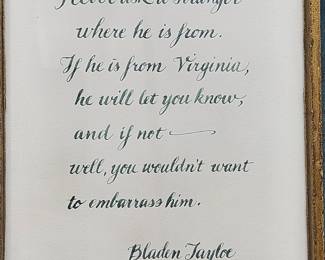 Never ask a stranger
where he is from.
If he is from Virginia,
he will let you know,
and if not —
well, you wouldn't want
to embarrass him.
Bladen Tayloe